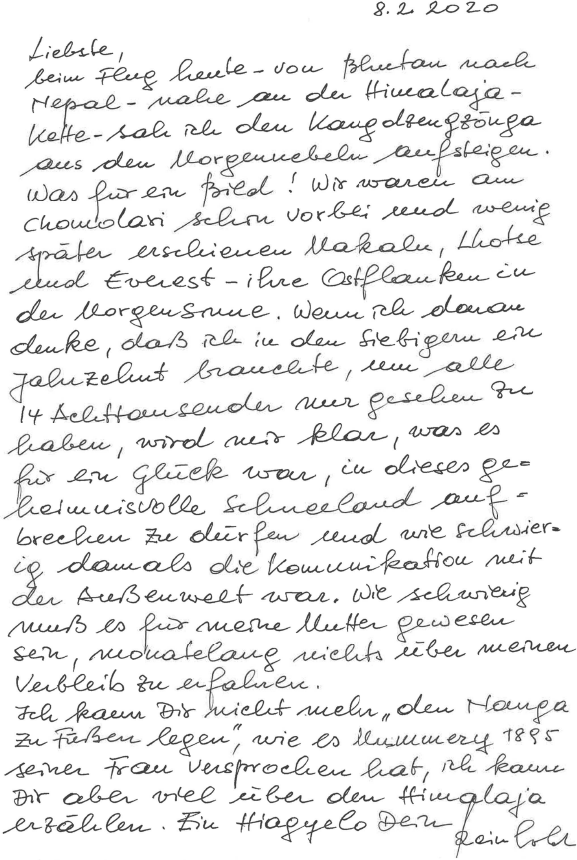 8.2.2020
Liebste,
beim Flug heute – von Bhutan nach
Nepal – nahe an der Himalaja-
Kette – sah ich den Kangdzengzönga
aus den Morgennebeln aufsteigen.
Was für ein Bild! Wir waren am
Chomolari schon vorbei und wenig
später erschienen Makalu, Lhotse
und Everest – ihre Ostflanken in
der Morgensonne. Wenn ich daran
denke, daß ich in den Siebigern ein
Jahrzehnt brauchte, um alle
14 Achttausender nur gesehen zu
haben, wird mir klar, was es
für ein Glück war, in dieses ge=
heimnisvolle Schneeland auf=
brechen zu dürfen und wie schwier=
ig damals die Kommunikation mit
der Außenwelt war. Wie schwierig
muß es für meine Mutter gewesen
sein, monatelang nichts über meinen
Verbleib zu erfahren.
Ich kann Dir nicht mehr „den Nanga
zu Füßen legen", wie es Mummery 1895
seiner Frau versprochen hat, ich kann
Dir aber viel über den Himalaja
erzählen. Ein Hiagyelo Dein
Reinhold